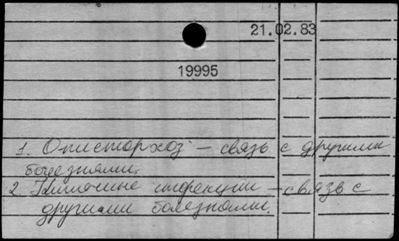 21.02.83
19995
1. Описторхоз – связь с другими
болезнями.
2. Кишечные инфекции – связь с
другими болезнями.